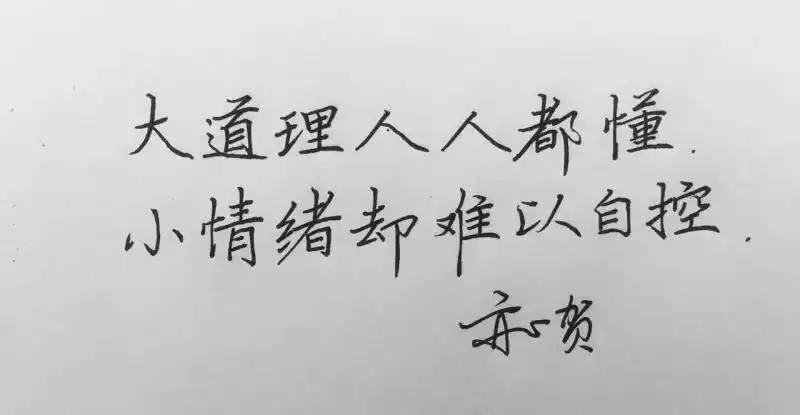 大道理人人都懂.
小情绪却难以自控.
贺